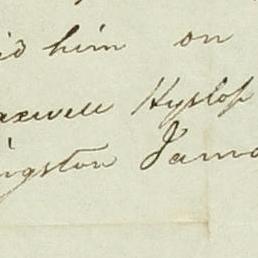 id him on
axwell Hyslop
ngston Jama